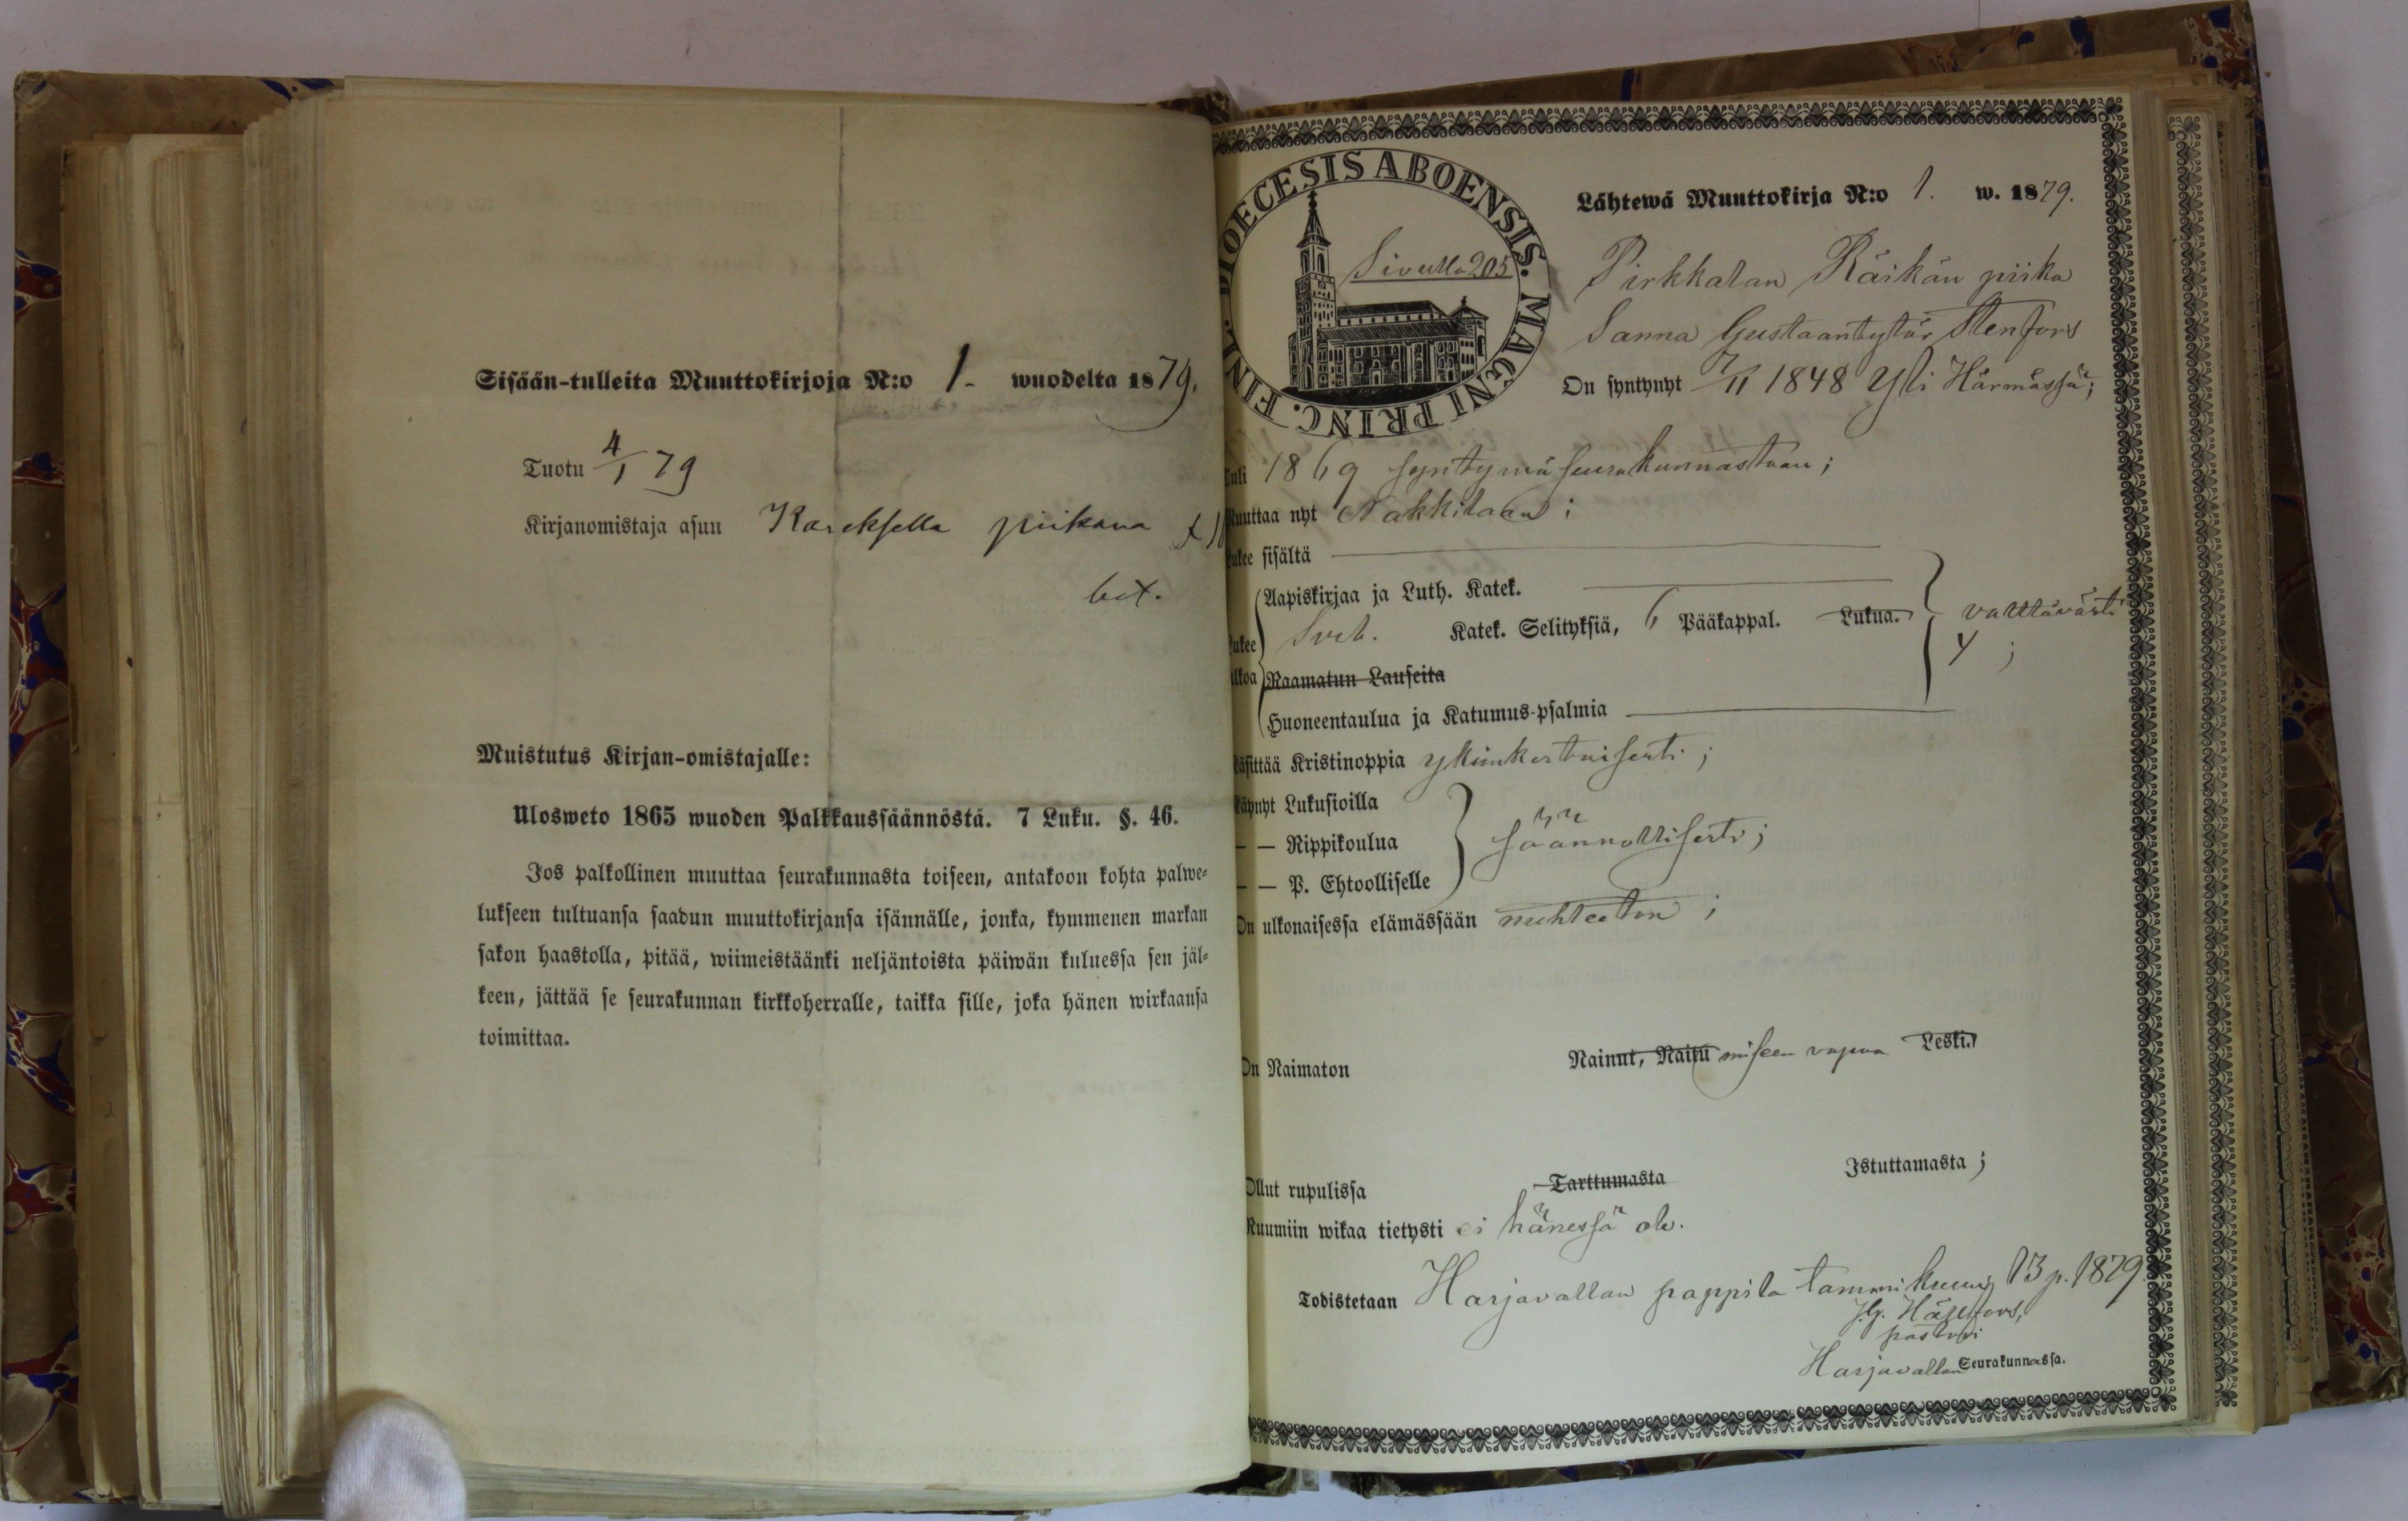 Sisään-tulleita Muuttokirjoja N:o 1. wuodelta 1879.
Tuotu 4/1 79
Kirjanomistaja asuu Kareksella piikana
bet.
Muistutus Kirjan-omistajalle:
Ulosweto 1865 wuoden Palkkaussäännöstä. 7 Luku. §. 46.
Jos palkollinen muuttaa seurakunnasta toiseen, antakoon kohta palwe-
lukseen tultuansa saadun muuttokirjansa isännälle, jonka, kymmenen markan
sakon haastolla, pitää, wiimeistäänki neljäntoista päiwän kuluessa sen jäl-
keen, jättää se seurakunnan kirkkoherralle, taikka sille, joka hänen wirkaansa
toimittaa.
DIOECESIS ABOENSIS. MAGNI PRINC. FINL.
Sivulla 205
Lähtewä Muuttokirja N:o 1. w. 1879.
Pirkkalan Räikän piika
Sanna Gustaantytär Stenfors
On syntynyt 7/11 1848 Yli Härmässä;
Tuli 1869 syntymä seurakunnastaan;
Muuttaa nyt Nakkilaan;
Lukee sisältä
Aapiskirjaa ja Luth. Katek.
Lukee Sveb. Katek. Selityksiä, 6 Pääkappal. Lukua. välttävästi
ulkoa Raamatun Lauseita
Huoneentaulua ja Katumus-psalmia
Käsittää Kristinoppia yksinkertaisesti;
Käynyt Lukusioilla
— — Rippikoulua säännöllisesti;
— — P. Ehtoolliselle
On ulkonaisessa elämässään nuhteeton;
On Naimaton Nainut, Naitu miseen vapaa Leski.
Ollut rupulissa Tarttumasta Istuttamasta;
Ruumiin wikaa tietysti ei hänessä ole.
Todistetaan Harjavallan pappila tammikuun 13 p. 1879.
J.G. Hällfors,
pastori
Harjavallan Seurakunnassa.